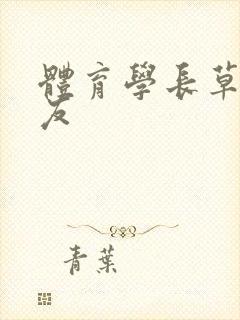 體育學長草
友
青葉